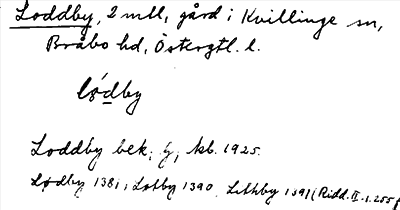 Loddby, 2 mtl, gård i Kvillinge sn,
Bråbo hd, Östergtl. l.
lǿdby
Loddby bek. G, kb. 1925.
Lødby 1381, Lotby 1390 Lithby 1391 (Ridd. II. s. 255 f